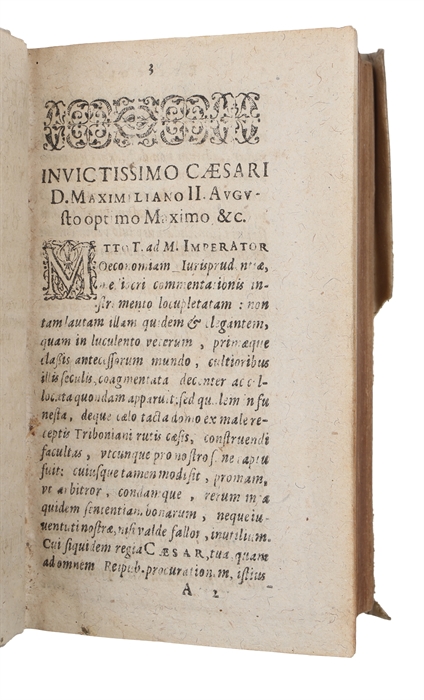 3
INVICTISSIMO CÆSARI
D. MAXIMILIANO II. AVGV-
sto optimo Maximo &c.
MITTO T. ad M. IMPERATOR
Oeconomiam Iurisprudentiæ,
mediocri commentationis in-
strumento locupletatam : non
tam lautam illam quidem & elegantem,
quam in luculento veterum , primæque
classis antecessorum mundo , cultioribus
illis seculis, coagmentata decenter ac col-
locata quondam apparuit: sed qualem in fu
nesta, deque cælo tacta domo ex male re-
ceptis Triboniani rutis cæsis, construendi
facultas , vtcunque pro nostro sane captu
fuit: cuiusque tamen modi sit , promam,
vt arbitror , condamque , rerum mea
quidem sententia bonarum , neque iu-
uentuti nostræ, nisi valde fallor , inutilium.
Cui siquidem regia CÆSAR, tua, quam
ad omnem Reipub. procurationem, istius
A 2